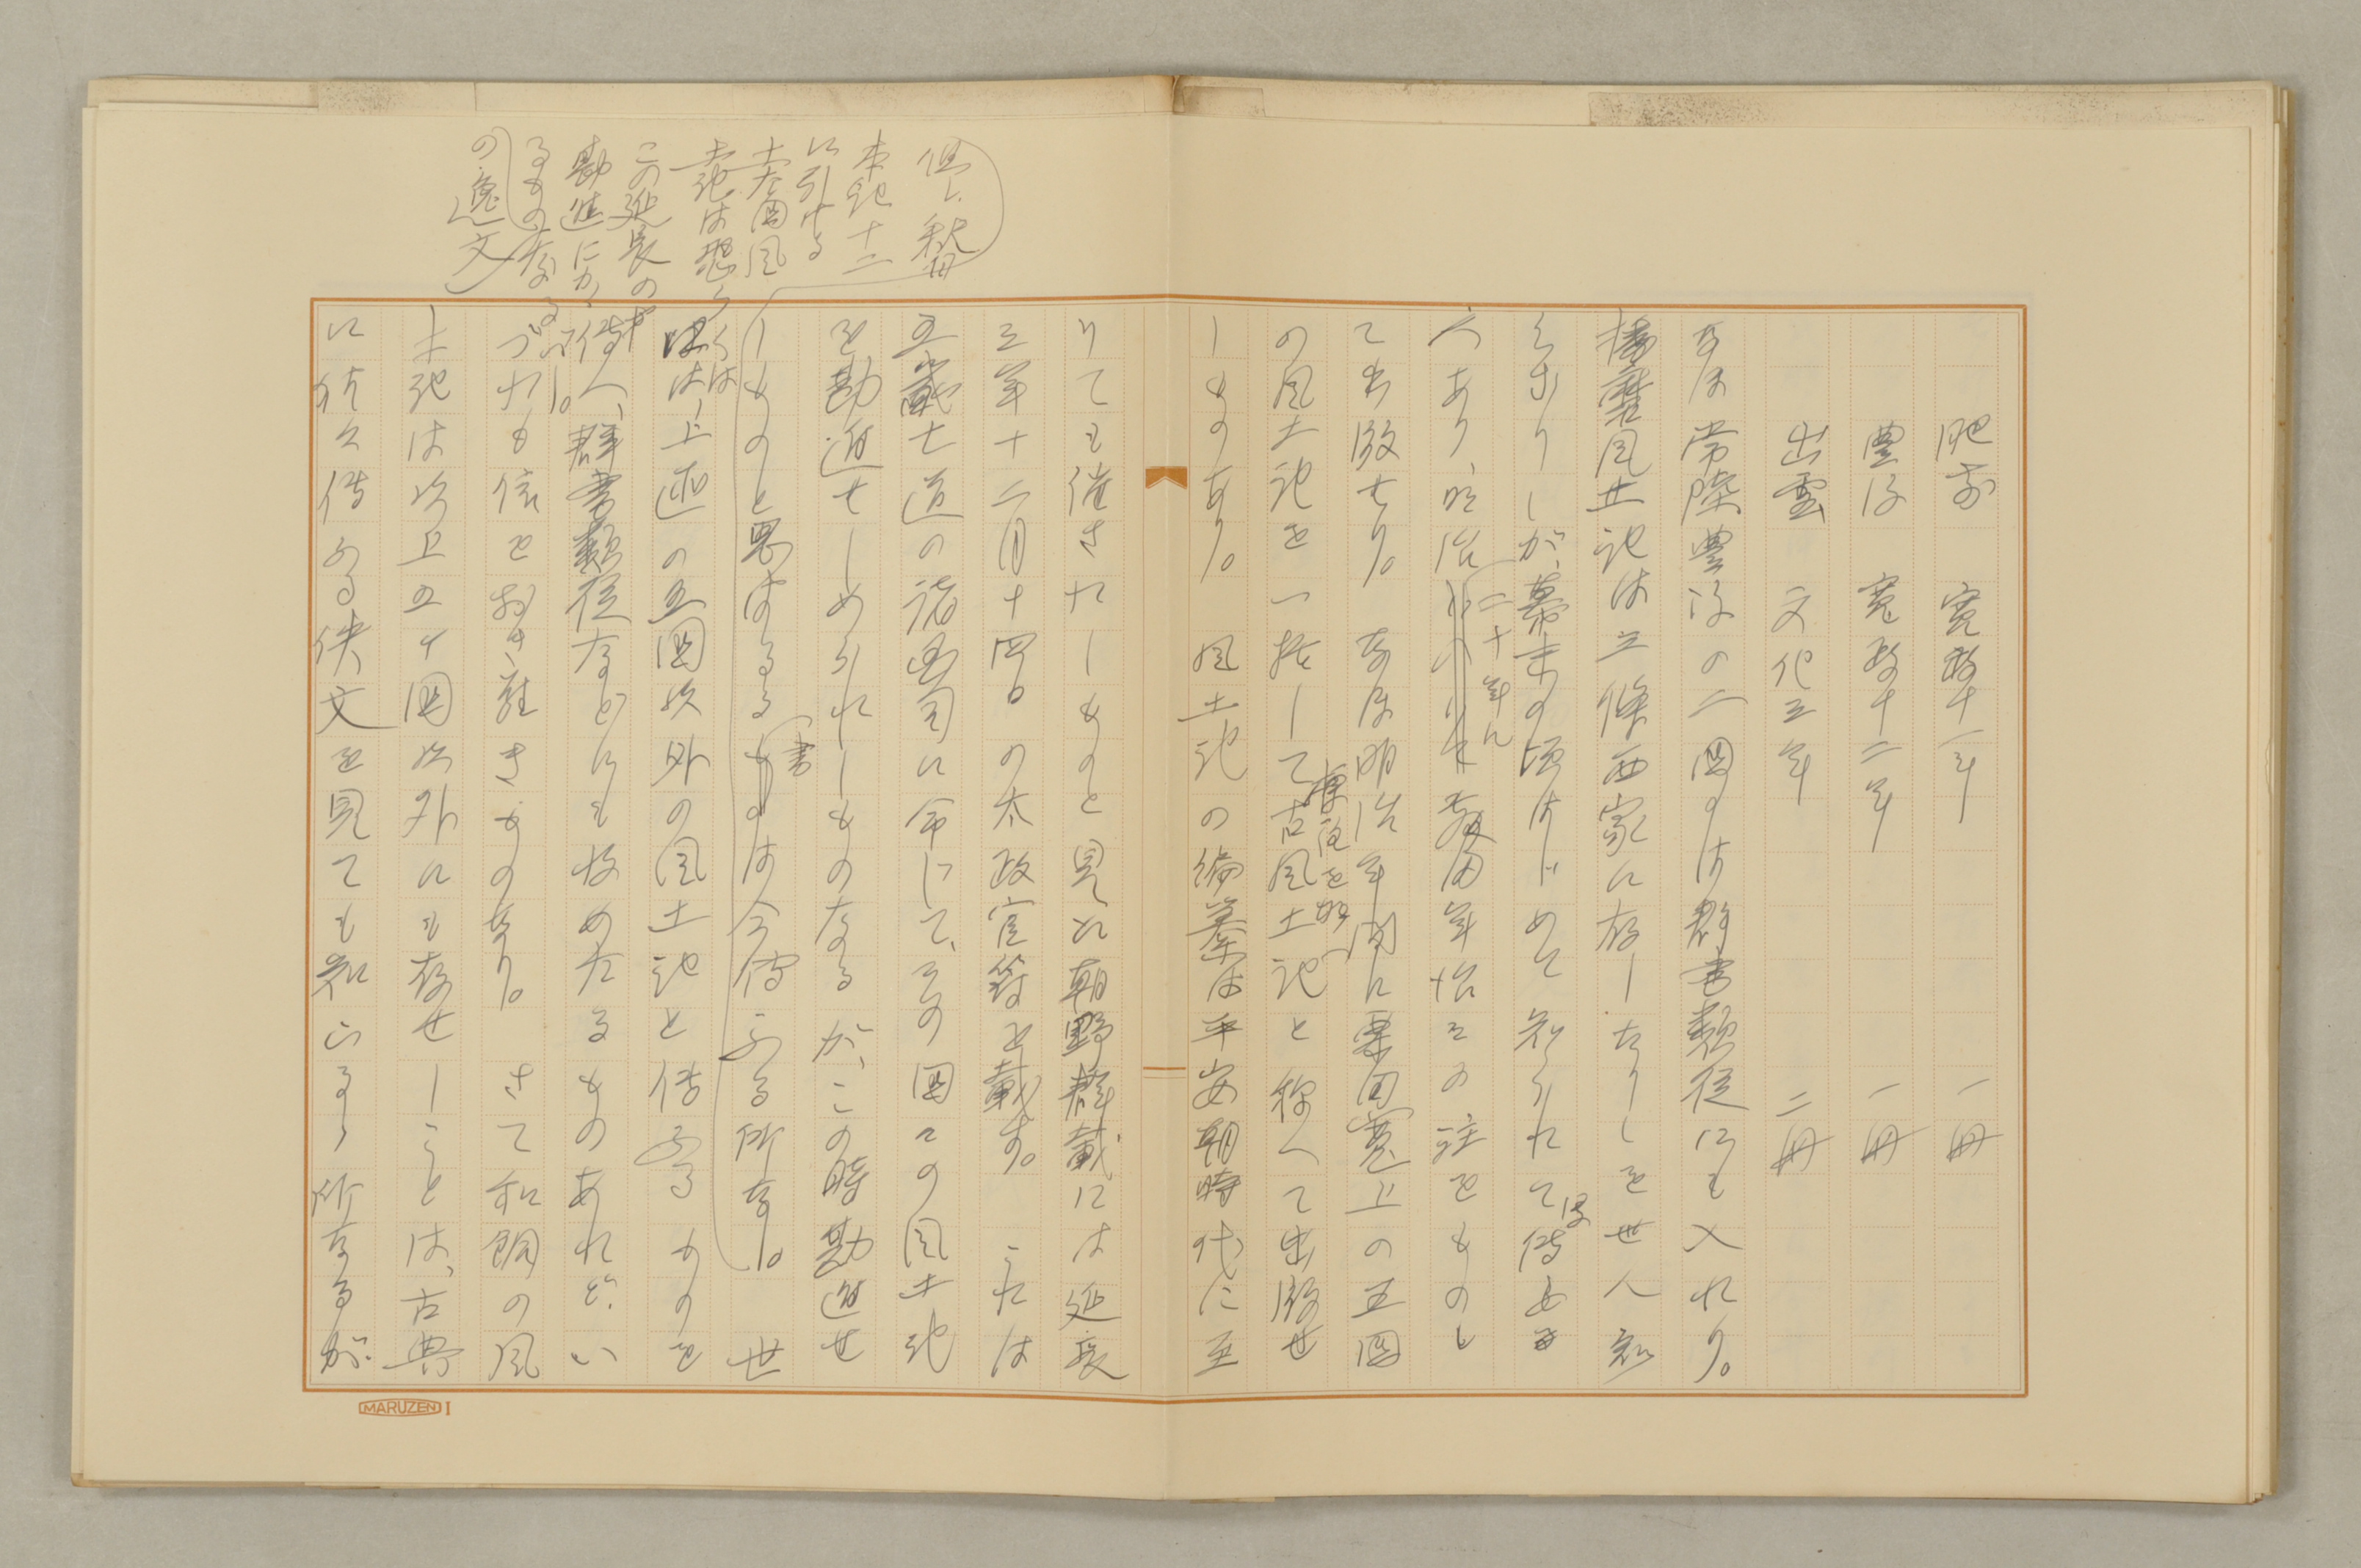 肥前 寛政十一年 一冊
豊後 寛政十二年 一冊
出雲 文化三年 二冊
なほ常陸豊後の二国のは群書類従にも入れり。
播磨風土記は三條西家に存したりしを世人知
らざりしが、幕末の頃はじめて知られて傳
へあり、明治二十年に敷田年治その注をものし
て出版せり。なほ明治年間に栗田寛上の五国
の風土記を一括して標注を加へ古風土記と称へて出版せ
しものあり。風土記の編纂は平安朝時代に至
りても催されしものと見え朝野群載には延長
三年十二月十四日の太政官符を載す。これは
五畿七道の諸国司に命じて、その国々の風土記
を勘進せしめられしものなるが、この時勘進せ
しものと思はるる書は今傳ふる所なし。世
には上述の五国以外の風土記と傳ふるものを
傳へ、群書類従などにも收めたるものあれど、い
づれも信をおき難きものなり。さて和銅の風
土記は以上の五国以外にも存せしことは、古典
に引き傳ふる佚文を見ても知らるる所なるが
但し、釈日
本紀十二
に引ける
土左国風
土記は恐らくは
この延長の
勘進にかゝ
るものなるべし。
の逸文
MARUZEN I